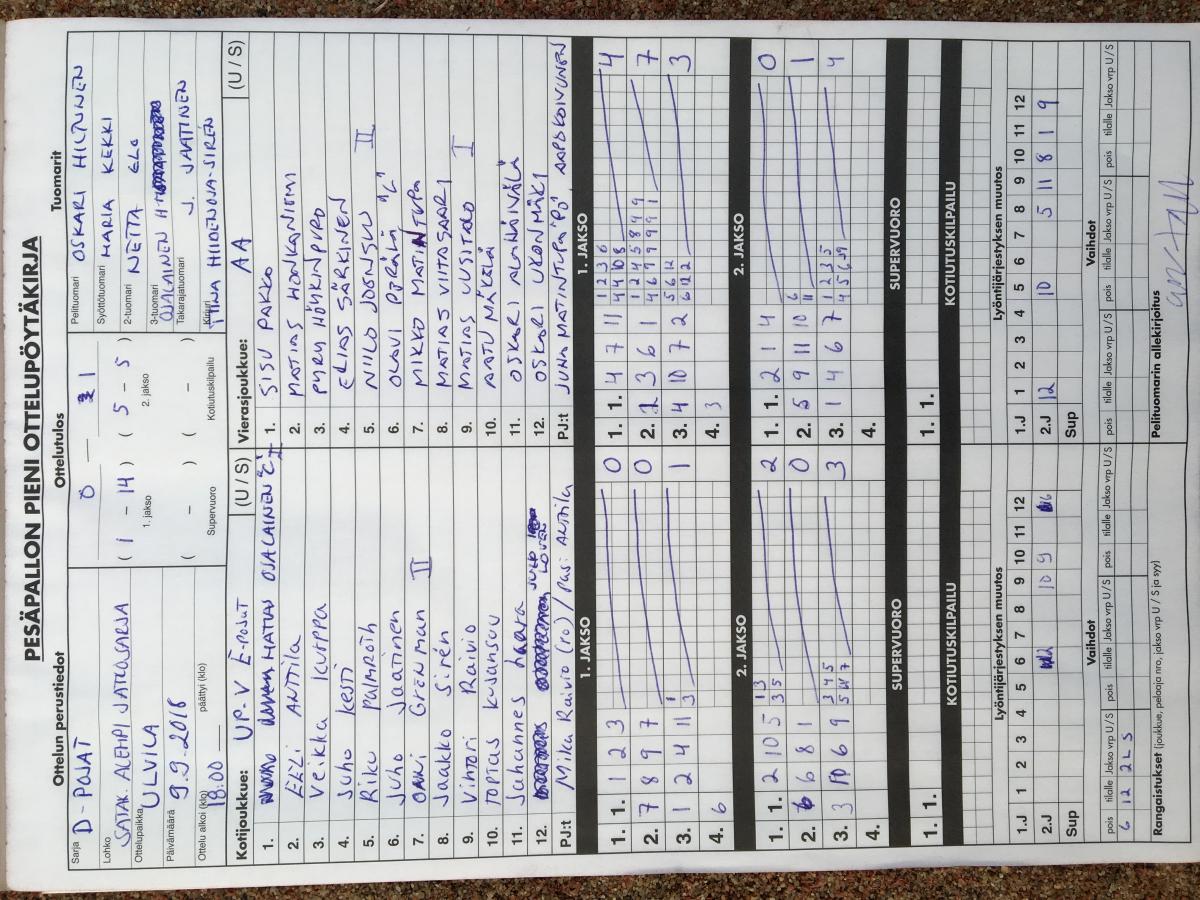 PESÄPALLON PIENI OTTELUPÖYTÄKIRJA
Ottelun perustiedot
Sarja D-POJAT
Lohko SATAK. ALEMPI JATKOSARJA
Ottelupaikka ULVILA
Päivämäärä 9.9.2018
Ottelu alkoi (klo) 18:00 päättyi (klo)
Ottelutulos
0 — 1
( 1 - 14 ) ( 5 - 5 )
1. jakso 2. jakso
( - ) ( - )
Supervuoro Kotiutuskilpailu
Tuomarit
Pelituomari OSKARI HILTUNEN
Syöttötuomari MARIA KEKKI
2-tuomari NETTA ELO
3-tuomari OJALAINEN
Takarajatuomari J. JAATINEN
Kirjuri TIINA HIIDENOJA-SIREN
Kotijoukkue: UP-V E-POJAT (U / S)
1. MATIAS OJALAINEN "C" I
2. EELI ANTTILA
3. Veikka Kauppa
4. Juho Kesti
5. Riku Palmroth
6. Juho Jaatinen
7. Grenman II
8. Jaakko Siren
9. Vihtori Raivio
10. TOPIAS Kusansuu
11. Juhannes haara
12. LOVEN
PJ:t Mika Raivio (ro) / Pasi Anttila
Vierasjoukkue: AA (U / S)
1. SISU PAKKO
2. MATIAS HONKANIEMI
3. PYRY HÖYKINPURO
4. ELIAS SÄRKINEN
5. NIILO JOENSUU II
6. OLAVI "C"
7. MIKKO MATINTUPA
8. MATIAS VIITASAARI
9. MATIAS UUSITALO I
10. AATU MÄKELÄ
11. OSKARI ALHAINVÄLÄ
12. OSKARI UKONMÄKI
PJ:t JUHA MATINTUPA "PJ" AAPO KOIVUNEN
1. JAKSO
1. 1. 1 2 3 0
2. 7 8 9 7 0
3. 1 2 4 11 1 3 1
4. 6
1. JAKSO
1. 1. 4 7 11 1 2 3 6 4 4 10 8 4
2. 3 6 1 1 2 4 5 8 9 9 4 6 7 9 9 9 1 7
3. 4 10 7 2 5 6 12 6 12 3
4. 3
2. JAKSO
1. 1. 2 10 5 1 3 3 5 2
2. 6 8 1 0
3. 3 10 6 9 3 4 5 3
4.
2. JAKSO
1. 1. 2 1 4 0
2. 5 9 11 10 6 11 1
3. 1 4 6 7 1 2 3 5 4 5 6 4
4.
SUPERVUORO
1. 1.
SUPERVUORO
1. 1.
KOTIUTUSKILPAILU
KOTIUTUSKILPAILU
Lyöntijärjestyksen muutos
1.J 1 2 3 4 5 6 7 8 9 10 11 12
2.J 12 10 9 6
Sup
Lyöntijärjestyksen muutos
1.J 1 2 3 4 5 6 7 8 9 10 11 12
2.J 12 10 5 11 8 1 9
Sup
Vaihdot
pois tilalle Jakso vrp U / S pois tilalle Jakso vrp U / S pois tilalle Jakso vrp U / S
6 12 2 L S
Vaihdot
pois tilalle Jakso vrp U / S pois tilalle Jakso vrp U / S pois tilalle Jakso vrp U / S
Rangaistukset (joukkue, pelaaja nro, jakso vrp U / S ja syy)
Pelituomarin allekirjoitus